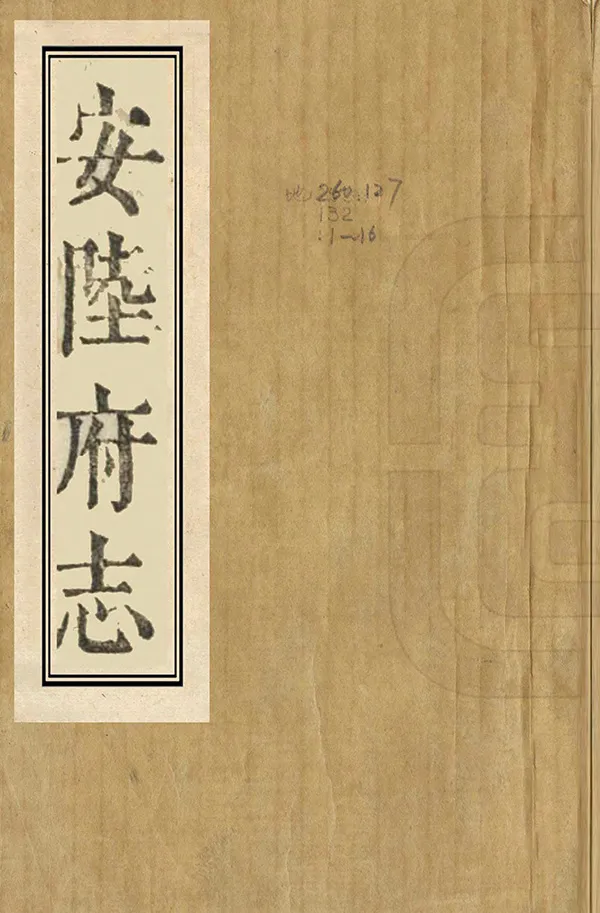 安陸府志
地 260.127
132
:1~16